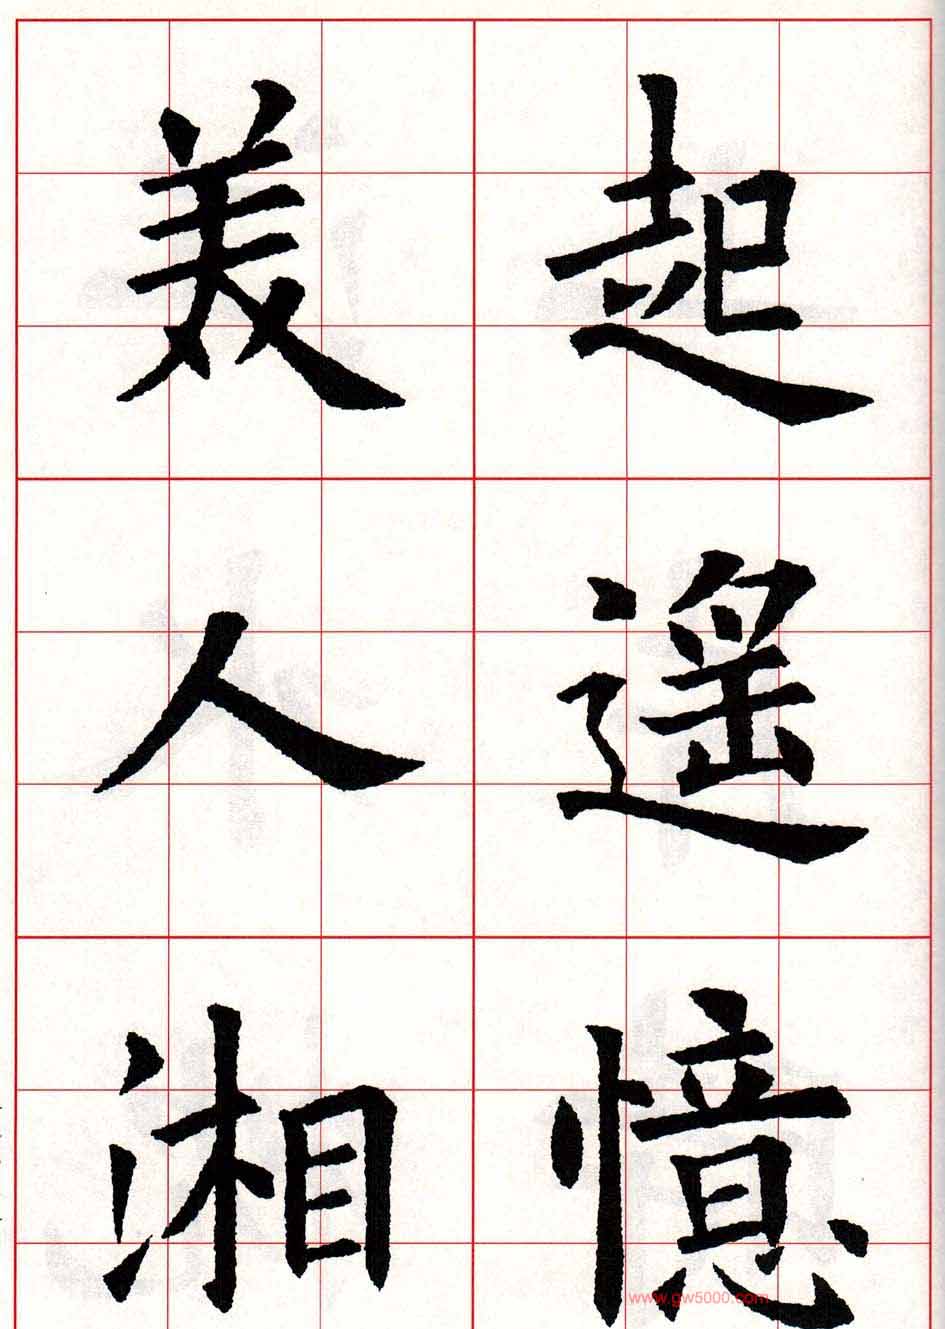 起遥憶
美人湘
www.gw5000.com